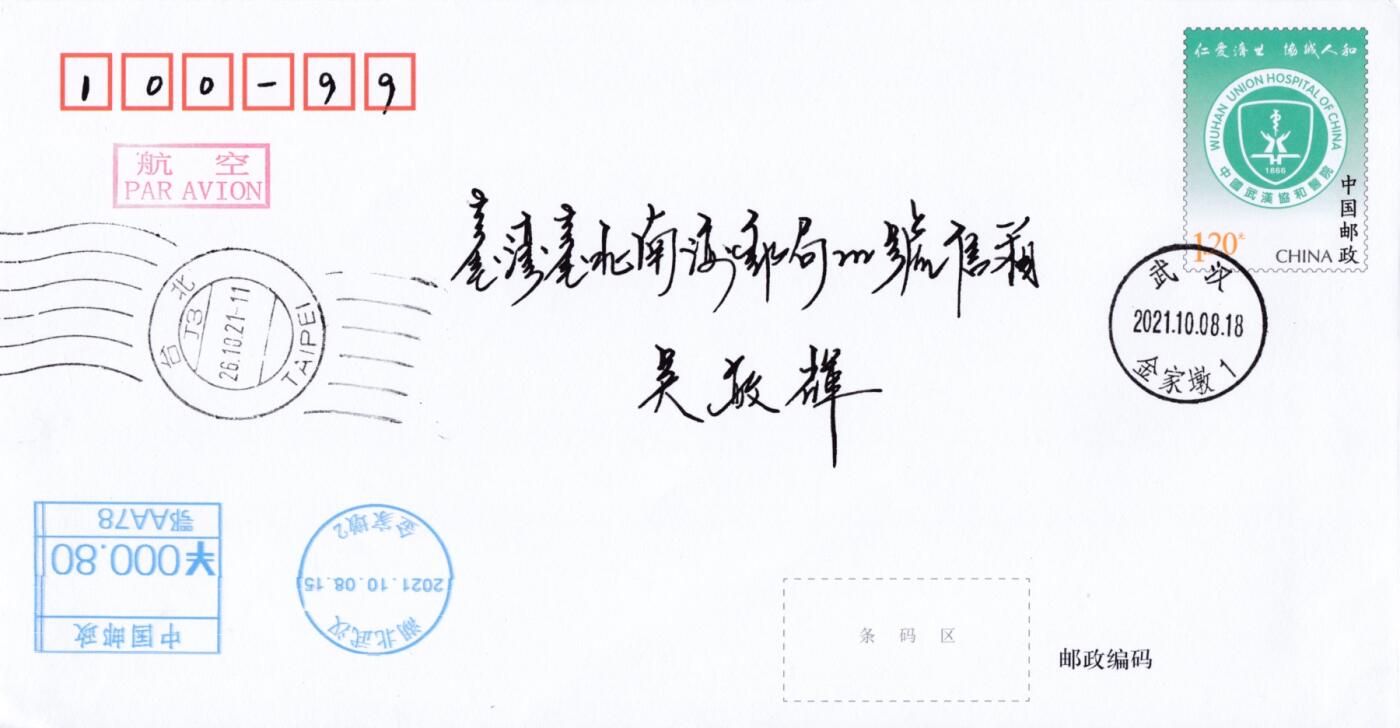 100-99
航 空
PAR AVION
仁爱济世 協诚人和
WUHAN UNION HOSPITAL OF CHINA
1866
中國武漢協和醫院
中国邮政
120
CHINA
臺灣臺北南海郵局號信箱
吴敬輝
台北
TAIPEI
J3
26.10.21-11
武汉
2021.10.08.18
金家墩1
鄂AA78
¥000.80
中国邮政
金家墩2
2021.10.08.15
湖北武汉
条 码 区
邮政编码